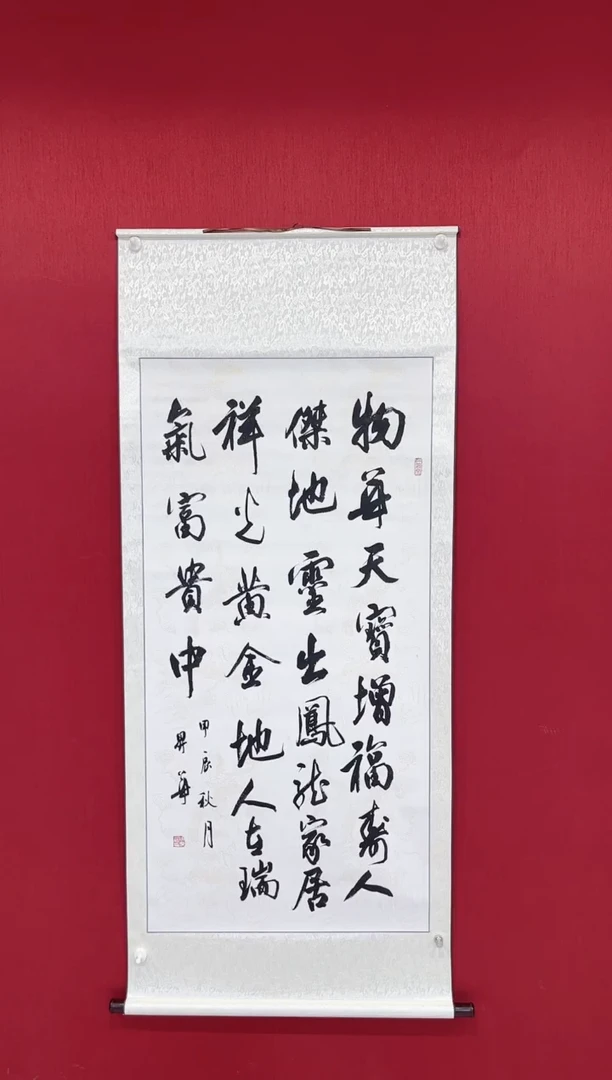 物華天寶增福壽人
傑地靈出鳳龍家居
祥光黃金地人在瑞
氣富貴中
甲辰秋月
昇華